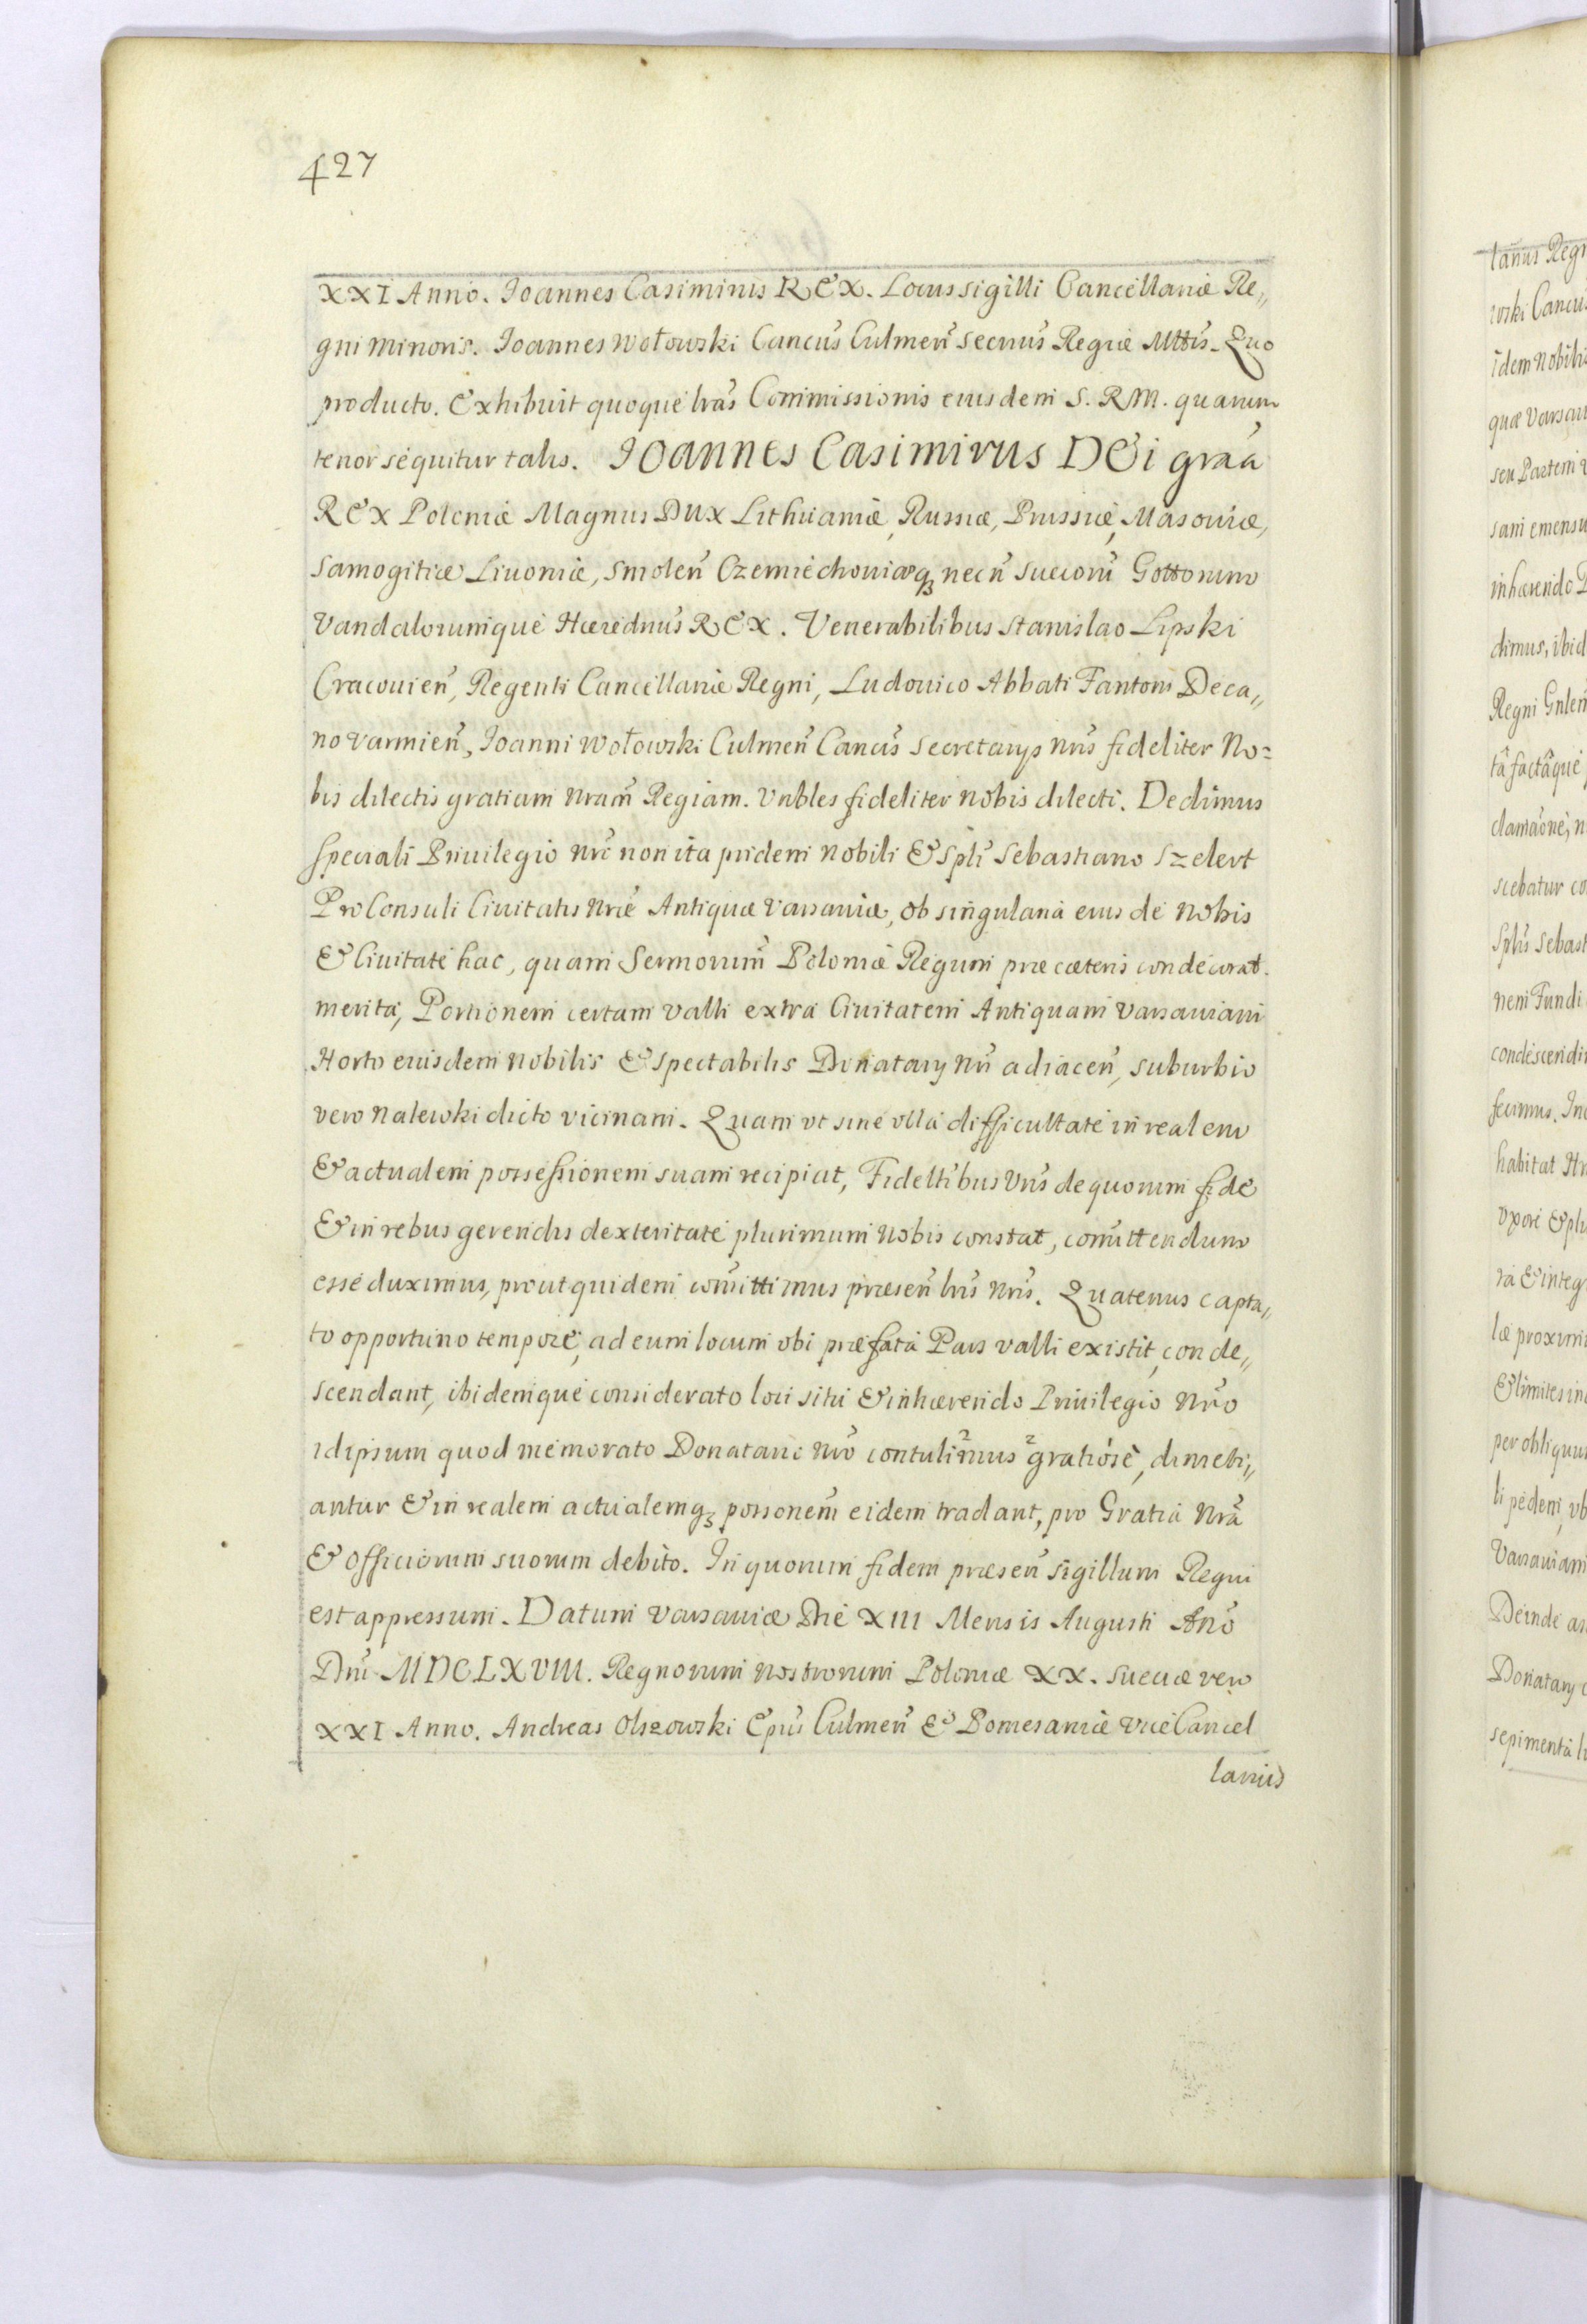 427
XXI Anno. Joannes Casimirus REX. Locus sigilli Cancellariæ Re„
gni minoris. Joannes Wołowski Cancus Culmeñ Secrius Regiæ Mttis. Quo
producto. Exhibuit quoque lras Commissionis eiusdem S. RM. quarum
tenor sequitur talis. JOANNES Casimirus DEi graa
REX Poloniæ Magnus Dux Lithuaniæ, Russiæ, Prussiæ, Masouiæ,
Samogitiæ Liuoniæ, Smoleñ Czerniechouiæq3 necñ Suecorũ Gottorum
Vandalorumque Hæredrius REX. Venerabilibus Stanislao Lipski
Cracouieñ, Regenti Cancellariæ Regni, Ludouico Abbati Fantoni Deca„
no Varmieñ, Joanni Wołowski Culmeñ Cancis Secretarys nris fideliter No=
bis dilectis gratiam nram Regiam. Vnbles fideliter nobis dilecti. Dedimus
speciali Priuilegio nro non ita pridem Nobili & Spli Sebastiano Szelert
ProConsuli Ciuitatis nræ Antiquæ Varsauiæ, ob singularia eius de Nobis
& Ciuitate hac, quam Sermorum Poloniæ Regum præ cæteris condecorat.
merita, Portionem certam Valli extra Ciuitatem Antiquam Varsauiam
Horto eiusdem Nobilis & Spectabilis Donatary nri adiaceñ, suburbio
vero Nalewki dicto vicinam. Quam vt sine vlla difficultate in realem
& actualem possessionem suam recipiat, Fidelitibus Vris de quorum fide
& in rebus gerendis dexteritate plurimum Nobis constat, comittendum
esse duximus, prout quidem comittimus præseñ lris nris. Quatenus capta„
to opportuno tempore, ad eum locum vbi præfata Pars valli existit, conde„
scendant, ibidemque considerato loci situ & inhærendo Priuilegio nro
idipsum quod memorato Donatario nro contulimus gratiose, dimeti„
antur & in realem actualemq3 possonem eidem tradant, pro Gratia nra
& Officiorum suorum debito. In quorum fidem præseñ Sigillum Regni
est appressum. Datum Varsauiæ Die XIII Mensis Augusti Ano
Dni MDCLXVIII. Regnorum nostrorum Poloniæ XX. Sueciæ vero
XXI Anno. Andreas Olszowski Epus Culmeñ & Pomesaniæ ViceCancel
larius
tarius Regn
wski Cancus
idem Nobilis
quæ Varsau
seu Partem v
sani emensu
inhærendo P
dimus, ibid
Regni Gnleñ
ta factaque
clamaone, n
scebatur co
Splis Sebast
nem Fundi
condescendi
fecimus. In
habitat
vxore & plu
ra & integ
læ proximi
& limites in
per obliquu
li pedem, vb
Varsauiam
Deinde a
Donatary
sepimenta